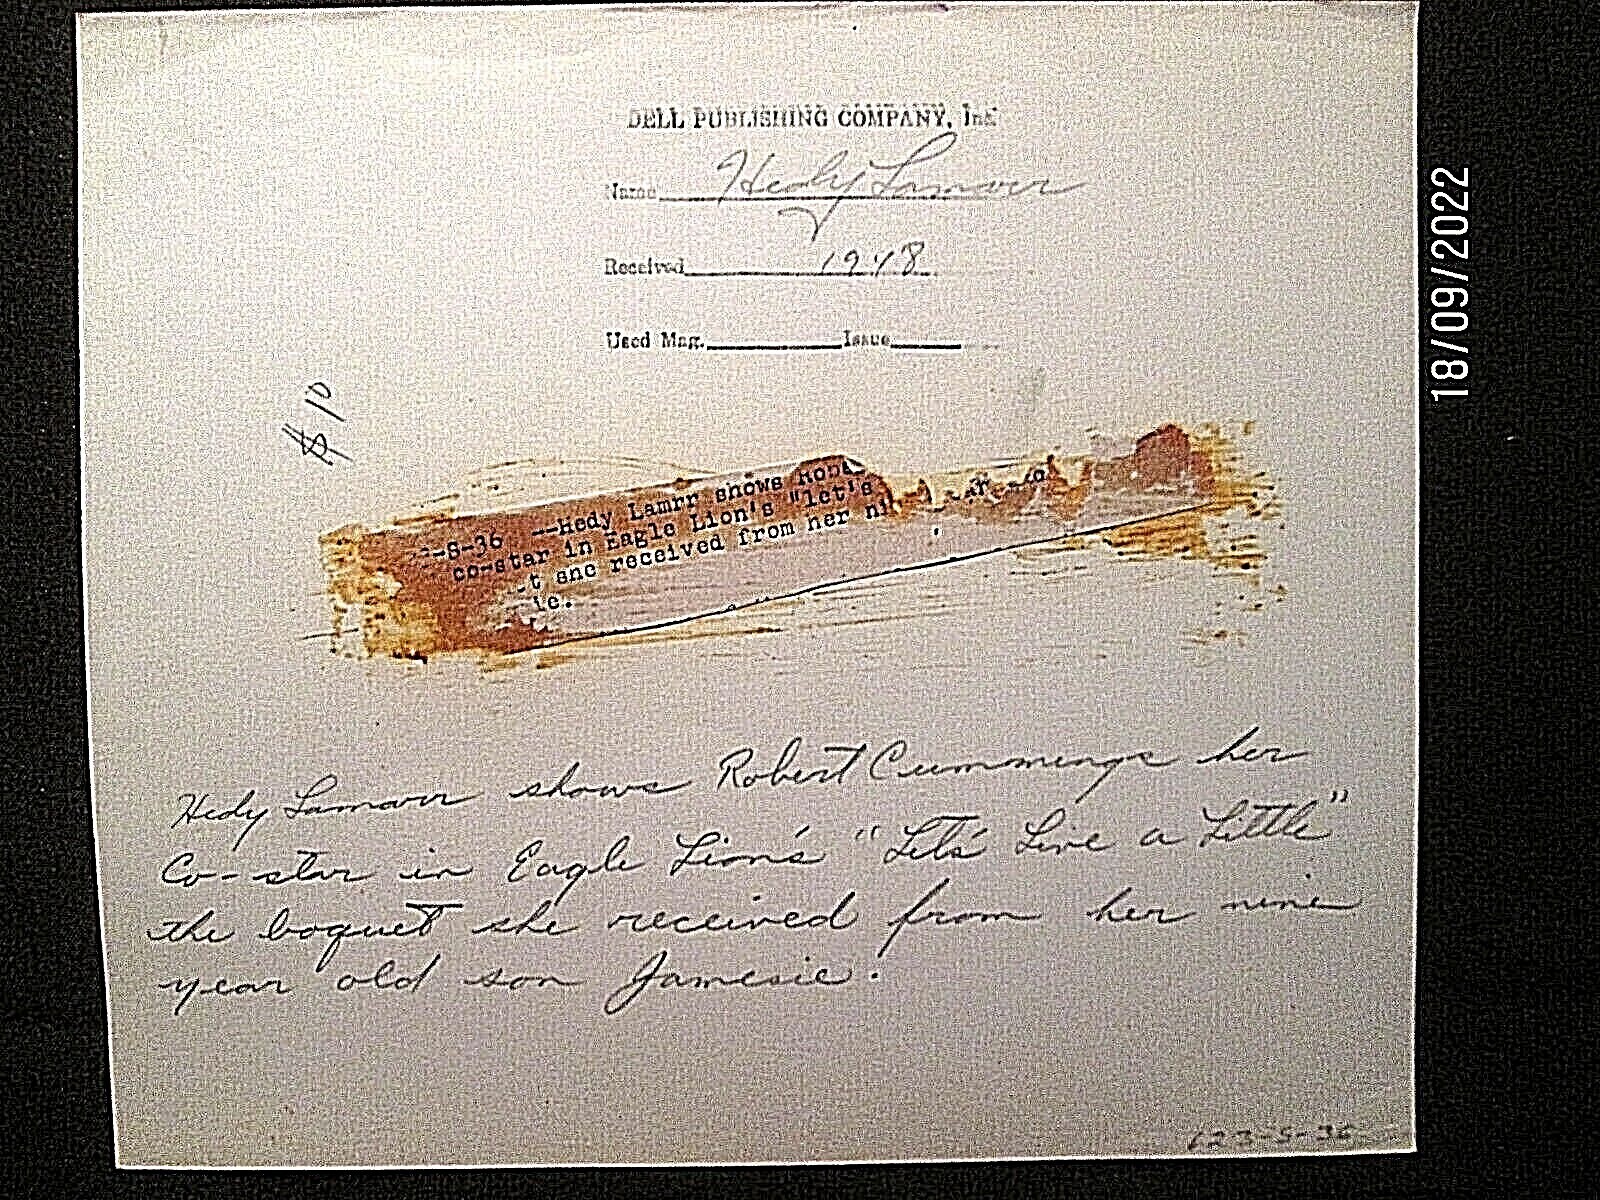 DELL PUBLISHING COMPANY, Inc.
Name Hedy Lamarr
Received 1948
Used Mag. Issue
$10
-S-36 --Hedy Lamrr shows Robe
co-star in Eagle Lion's "let's
t she received from her ni
ie.
Hedy Lamarr shows Robert Cummings her
Co-star in Eagle Lion's "Let's Live a Little"
the boquet she received from her nine
year old son Jamesie.
123-S-36
18/09/2022